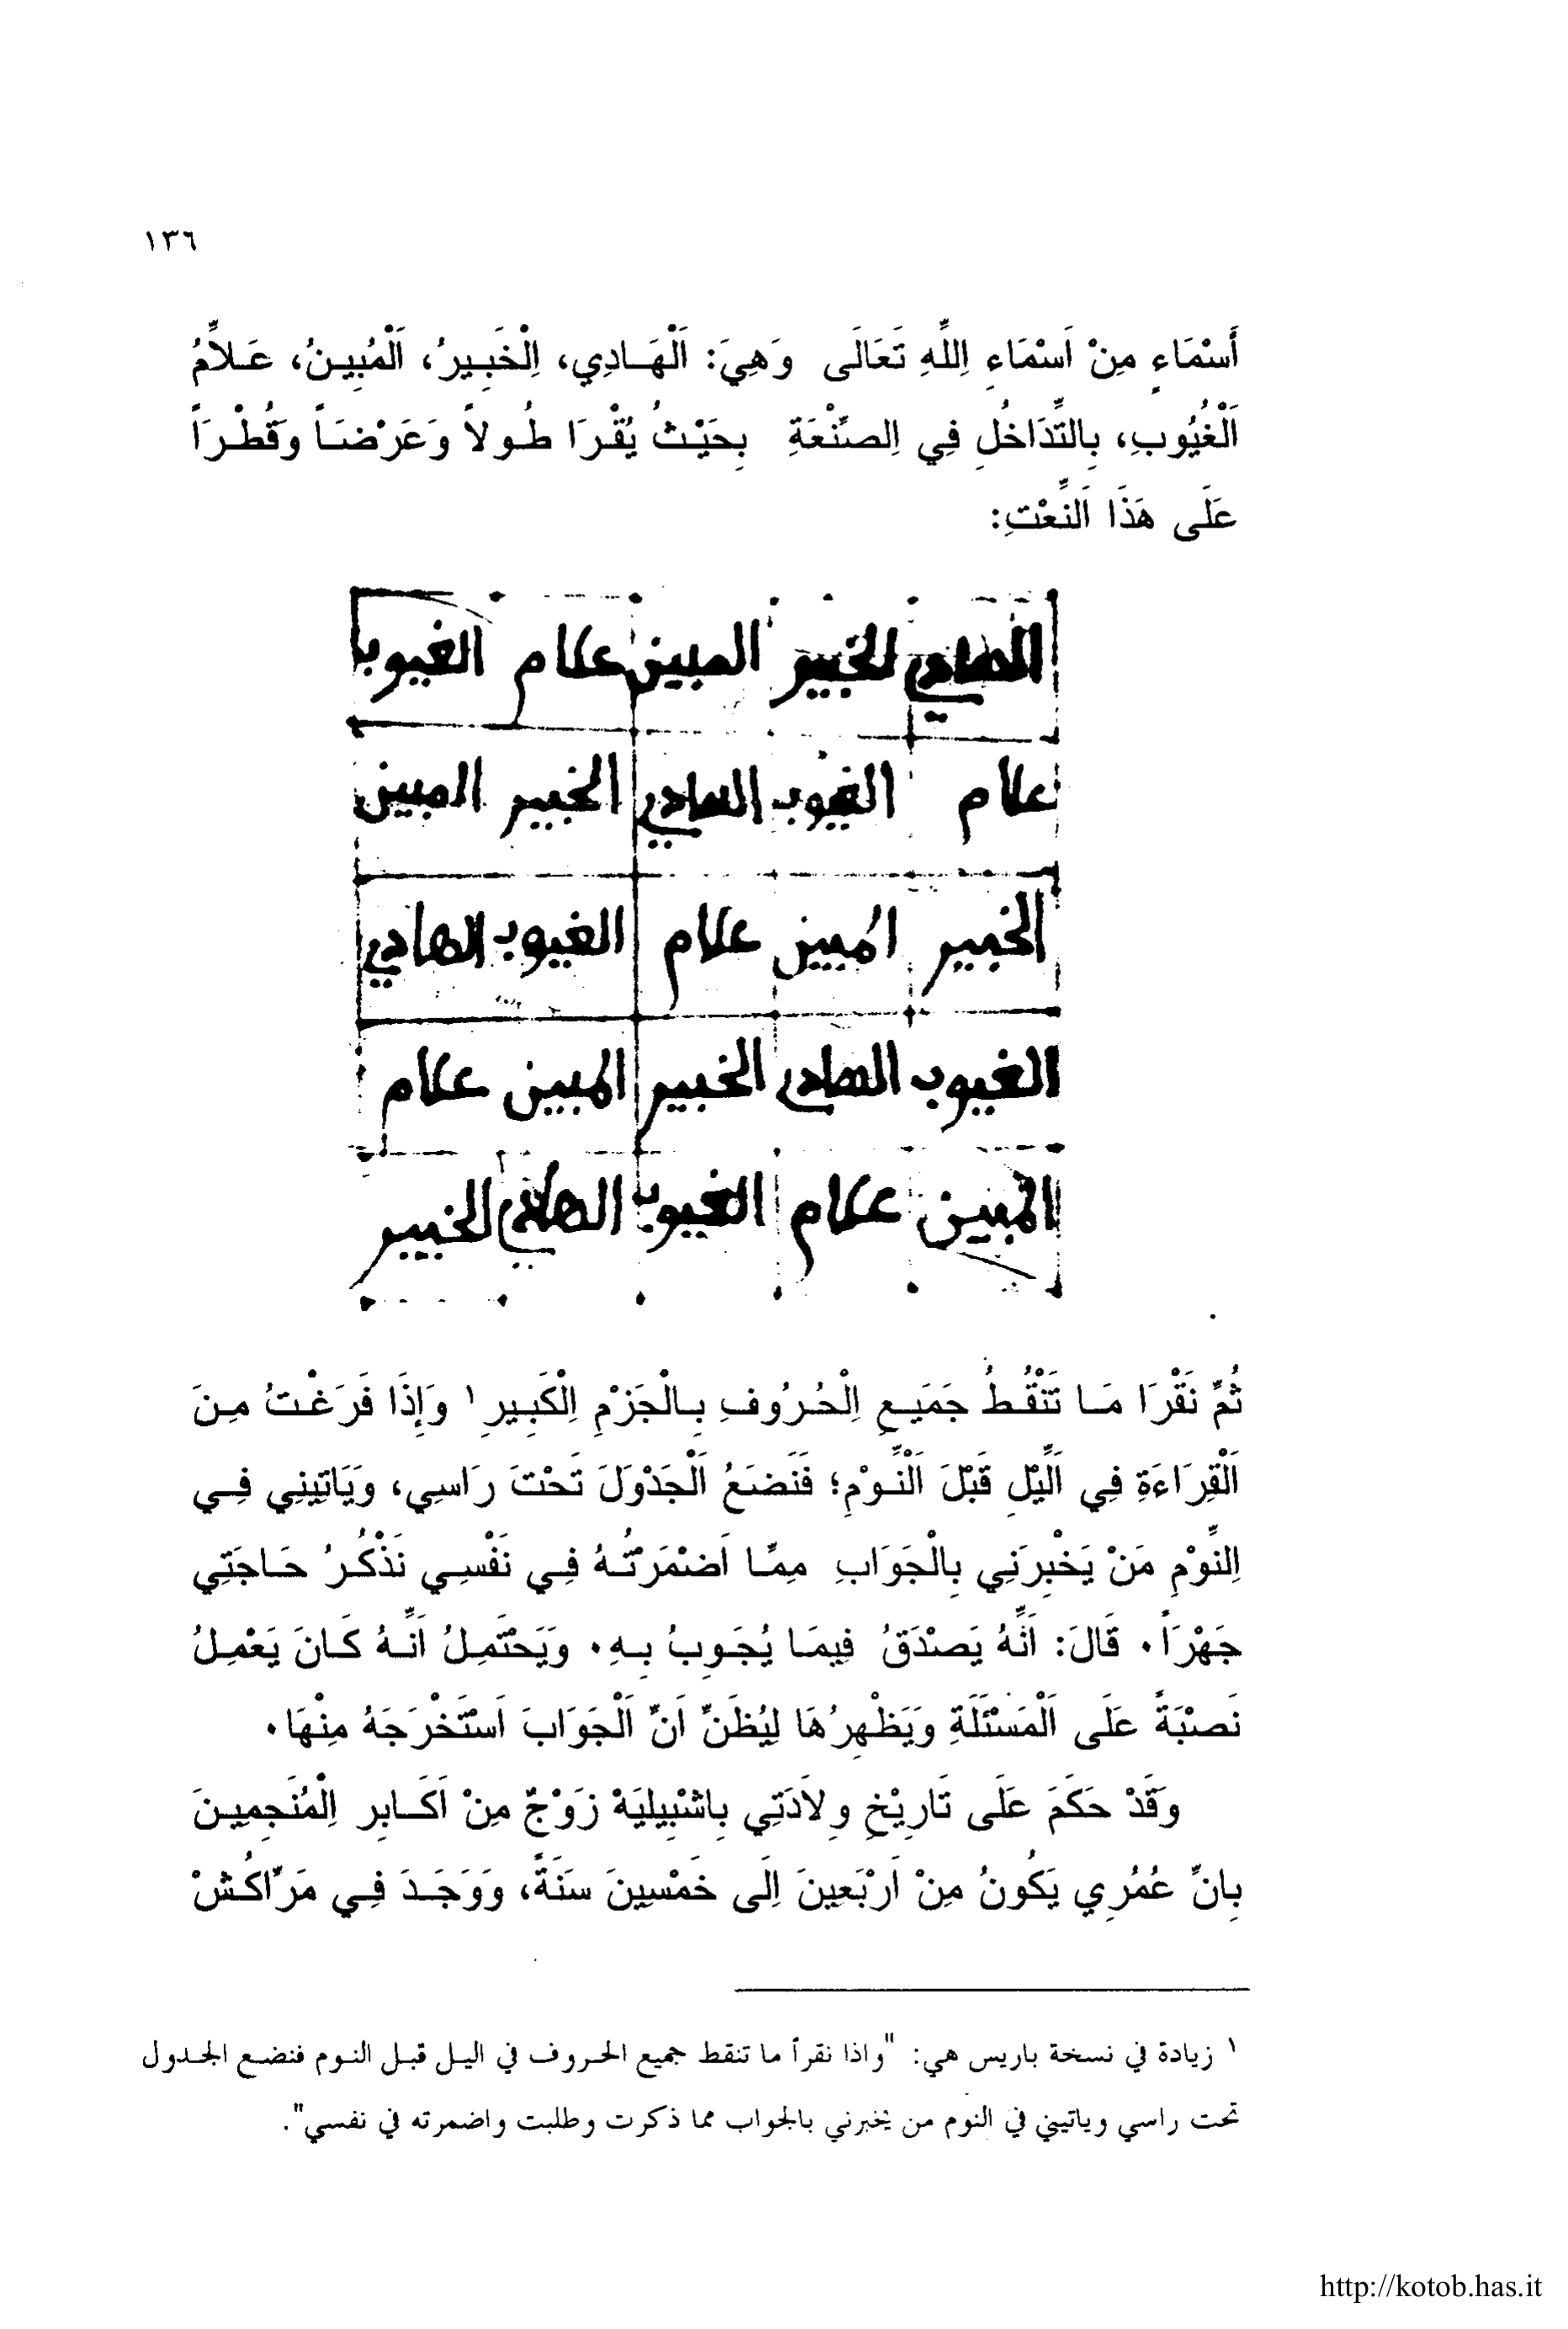 ١٣٦
أَسْمَاءٍ مِنْ اَسْمَاءِ اِللَّهِ تَعَالَى وَهِيَ: اَلْهَادِي، اِلْخَبِيرُ، اَلْمُبِينُ، عَلاَّمُ
اَلْغُيُوبِ، بِالتَّدَاخُلِ فِي اِلصَّنْعَةِ بِحَيْثُ يُقْرَا طُولاً وَعَرْضَاً وَقُطْرَاً
عَلَى هَذَا اَلنَّعْتِ:
الهادي الخبير المبين علام الغيوب
علام الغيوب الهادي الخبير المبين
الخبير المبين علام الغيوب الهادي
الغيوب الهادي الخبير المبين علام
المبين علام الغيوب الهادي الخبير
ثُمَّ نَقْرَا مَا تَنْقُطُ جَمَيَعِ اِلْحُرُوفِ بِالْجَزْمِ اِلْكَبِيرِ ١ وَإِذَا فَرَغْتُ مِنَ
اَلْقِرَاءَةِ فِي اَلَّيْلِ قَبْلَ اَلْنَّوْمِ؛ فَنَضَعُ اَلْجَدْوَلَ تَحْتَ رَاسِي، وَيَاتِينِي فِي
اِلنَّوْمِ مَنْ يَخْبِرَنِي بِالْجَوَابِ مِمَّا اَضْمَرْتُهُ فِي نَفْسِي نَذْكُرُ حَاجَتِي
جَهْرَاً. قَالَ: اَنَّهُ يَصْدَقُ فِيمَا يُجَوِبُ بِهِ. وَيَحْتَمِلُ اَنَّهُ كَانَ يَعْمِلُ
نَصْبَةً عَلَى اَلْمَسْئَلَةِ وَيَظْهِرُهَا لِيُظَنَّ اَنَّ اَلْجَوَابَ اَسْتَخْرَجَهُ مِنْهَا.
وَقَدْ حَكَمَ عَلَى تَارِيْخِ وِلاَدَتِي بِاشْبِيلِيَهْ زَوْجٌ مِنْ اَكَابِرِ اِلْمُنَجِمِينَ
بِانَّ عُمُرِي يَكُونُ مِنْ اَرْبَعِينَ اِلَى خَمْسِينَ سَنَةً، وَوَجَدَ فِي مَرَّاكُشْ
١ زيادة في نسخة باريس هي: "واذا نقرأ ما تنقط جميع الحروف في اليل قبل النوم فنضع الجدول
تحت راسي وياتيني في النوم من يخبرني بالجواب مما ذكرت وطلبت واضمرته في نفسي".
http://kotob.has.it